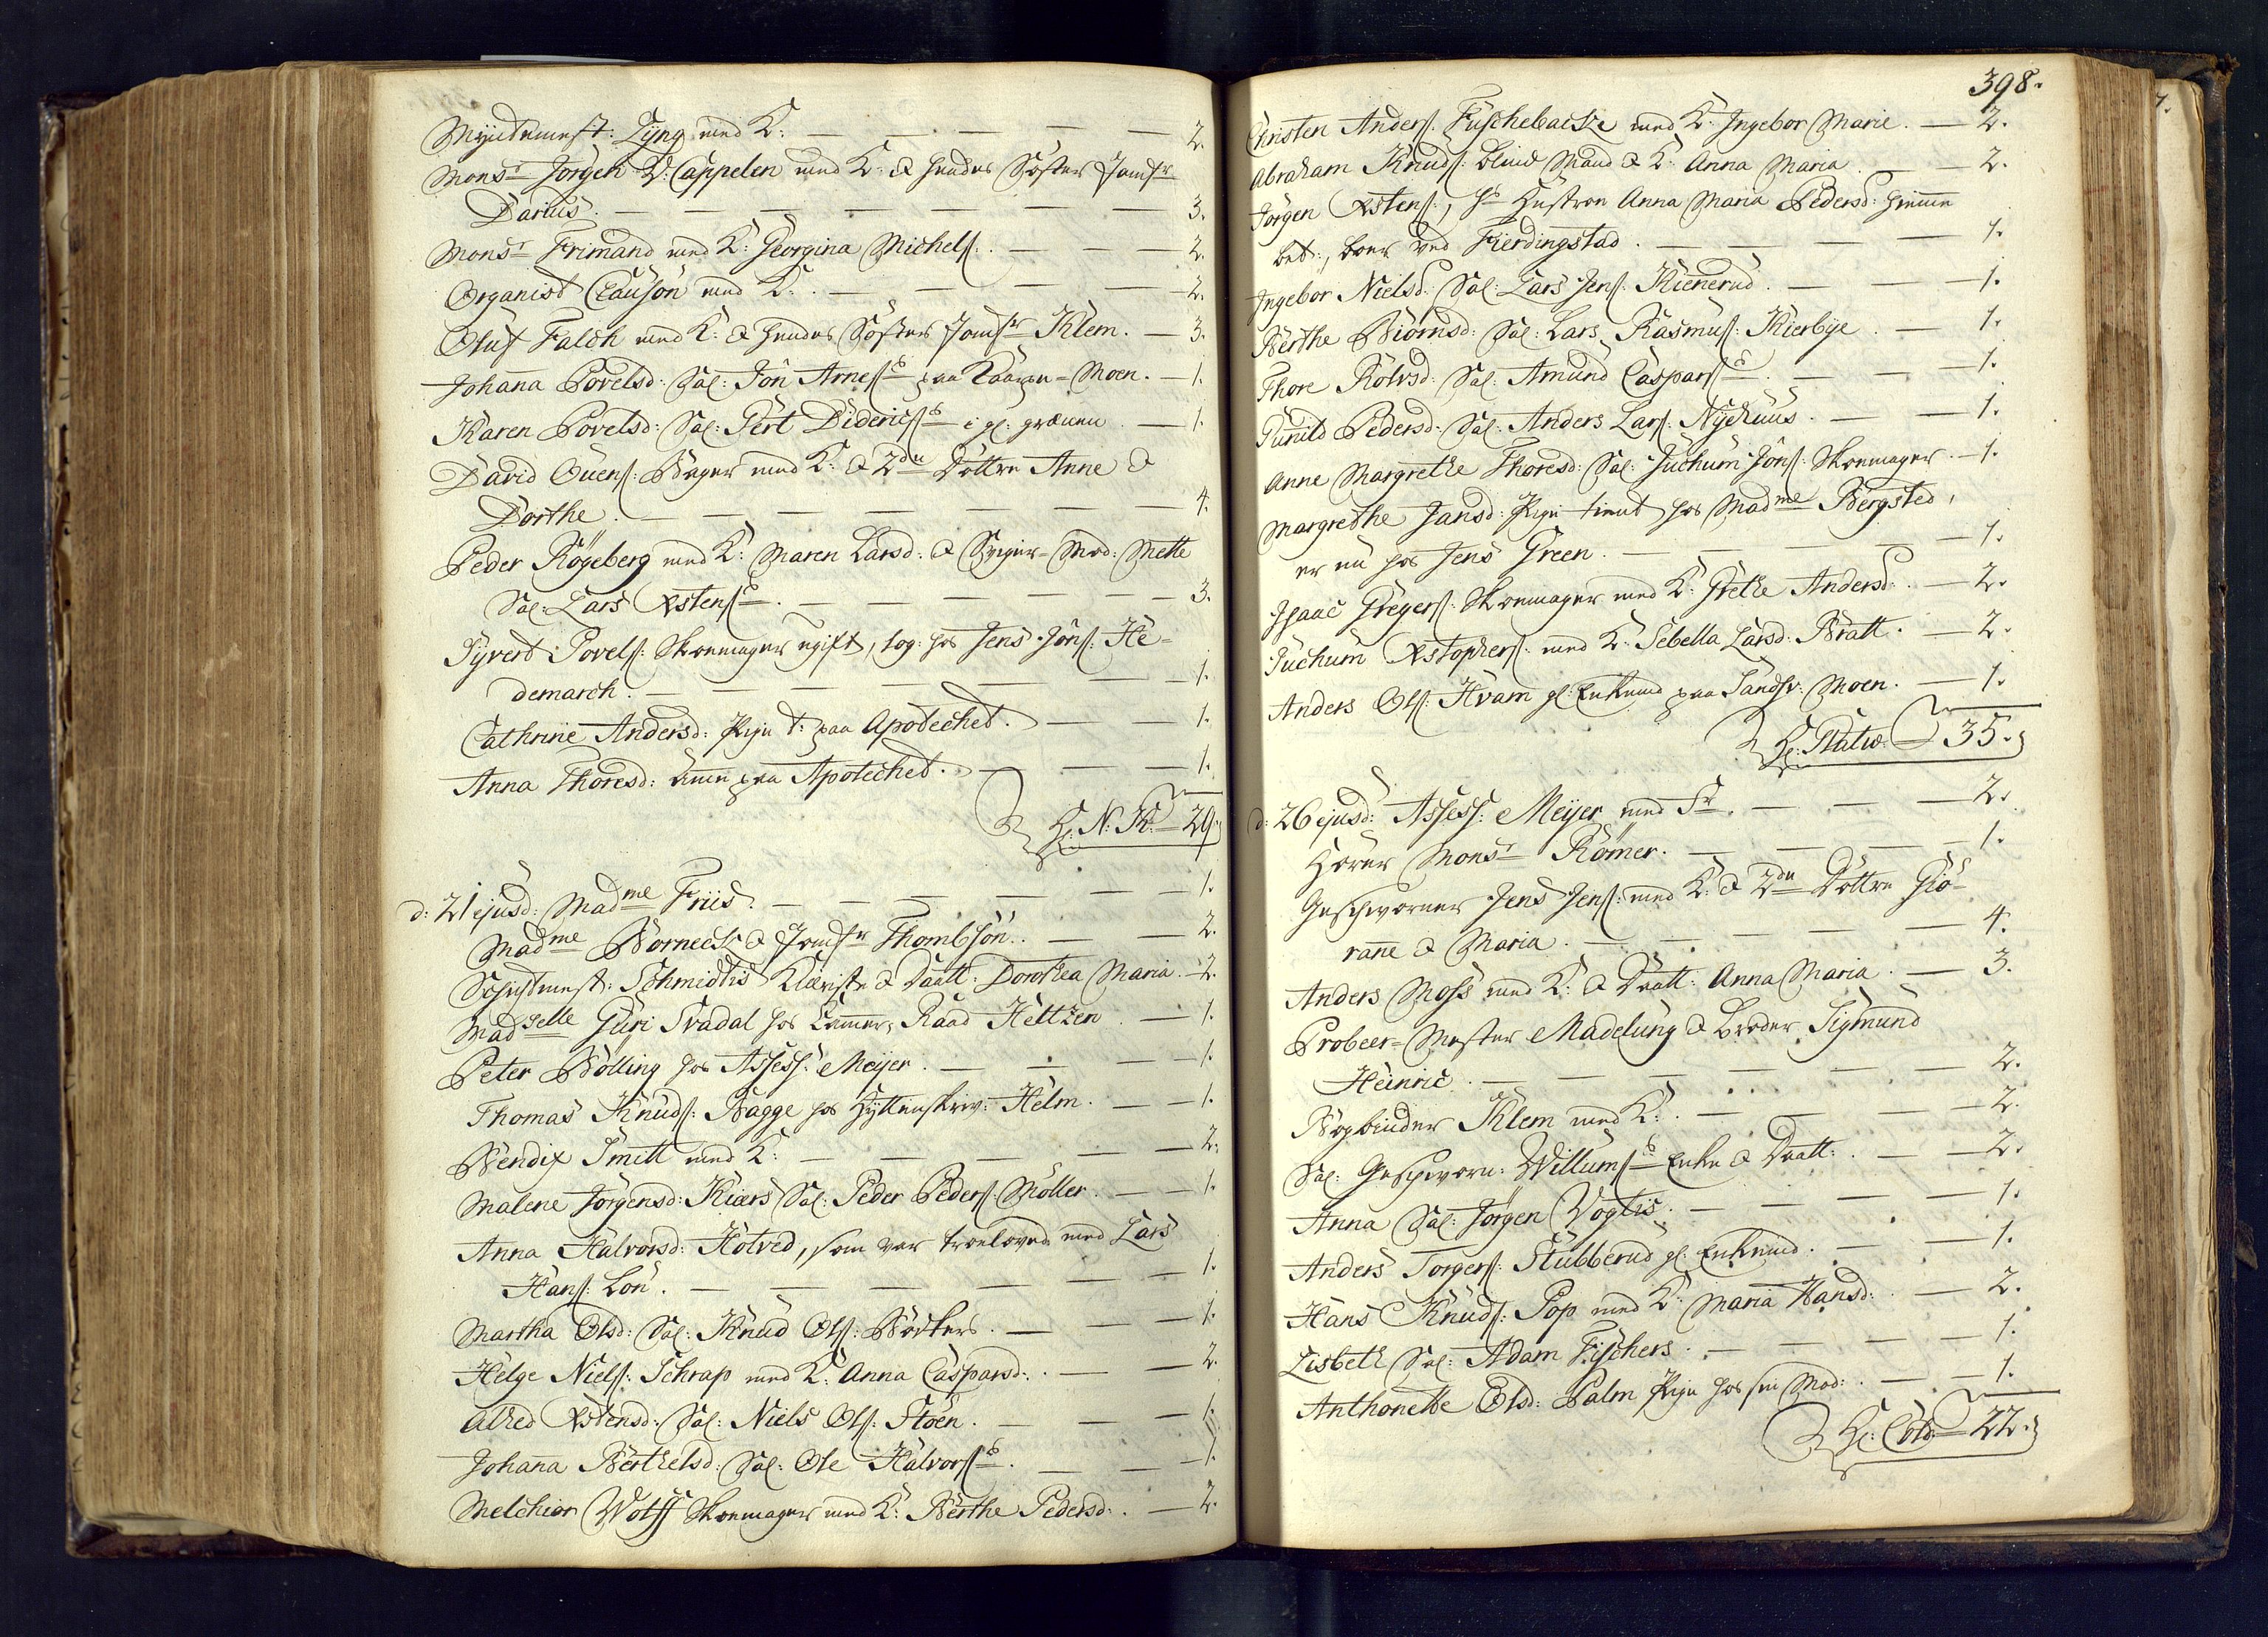 Myntemest: Lyng med K: — 2.
Monsr Jørgen V: Cappelen med K: & hendes Søster Jomfr
Darius. — 3.
Monsr Frimand med K: Georgina Michels: — 2.
Organist Clauson med K: — 2.
Oluf Falch med K: & hendes Søster Jomfr Klem. — 3.
Johanna Povelsd: Sal: Jon Arness paa Moen. — 1.
Karen Povelsd: Sal: Gert Diderics i gl: grænen — 1.
David Ouens: Bager med K: & 2de Døttre Anne &
Dorthe. — 4.
Peder Røgeberg med K: Maren Larsd: & Sviger-Mod: Mette
Sal: Lars Xstens. — 3.
Syvert Povels: Skoemager ugift, log: hos Jens Jøns: He-
demarch. — 1.
Cathrine Andersd: Pige t: paa Apotechet. — 1.
Anna Thoresd: Amme paa Apotechet. — 1.
H: N: K: — 29
d: 21 ejusd: Madme Friis. — 1.
Madme Borneck & Jomfr Thombsøn. — 2.
Schichtmest: Schmidtis Kiereste & Daatt: Dorothea Maria. — 2.
Madselle Guri Svadal hos Cammer-Raad Heltzen — 1.
Peter Bølling hos Assess: Meyer. — 1.
Thomas Knuds: Bagge hos Hytteskriv: Helm. — 1.
Bendix Smitt med K: — 2.
Malene Jørgensd: Kiærs Sal: Peder Peders: Møller. — 1.
Anna Halvorsd: Hotved, som var troelovede med Lars
Hans: Lon. — 1.
Martha Olsd: Sal: Knud Ols: Bødkers. — 1.
Helge Niels: Schrap med K: Anna Caspersd: — 2.
Alhed Xstensd: Sal: Niels Ols: Støen. — 1.
Johanna Berthelsd: Sal: Ole Halvors. — 1.
Melchior Wolff Skoemager med K: Berthe Pedersd: — 2.
398.
Christen Anders: Fuschebache med K: Ingebor Marie. — 2.
Abraham Knuds: blind Mand & K: Anna Maria — 2.
Jørgen Xstens:, hs Hustroe Anna Maria Pedersd: hiemme
bet:, boer ved Fierdingstad. — 1.
Ingebor Nielsd: Sal: Lars Jens: Kienerud. — 1.
Berthe Biørnsd: Sal: Lars Rasmus: Kierbye — 1.
Thore Rolvsd: Sal: Amund Caspars. — 1.
Gunild Pedersd: Sal: Anders Lars: Nyehuus. — 1.
Anne Margrethe Thoresd: Sal: Juchum Jøns: Skoemager — 1.
Margrethe Jansd: Pige tient hos Madme Bergsted,
er nu hos Jens Green. — 1.
Isaac Gregers: Skoemager med K: Grethe Andersd: — 2.
Juchum Xstophers: med K: Sebella Larsd: Bratt. — 2.
Anders Ols: Hvam gl: Enkemd paa Sandsv: Moen. — 1.
H: Statio — 35.
d: 26 ejusd: Assess: Meyer med Fr. — 2.
Hører Monsr Rømer. — 1.
Geschworner Jens Jens: med K: & 2de Døttre Giø-
ranne & Maria. — 4.
Anders Moss med K: & Daatt: Anna Maria. — 3.
Probeer-Mester Madelung & Broder Sigmund
Heinric. — 2.
Bogbinder Klem med K: — 2.
Sal: Geschworn: Willums Enke & Daatt: — 2.
Anna Sal: Jørgen Vogtis. — 1.
Anders Torgers: Stubberud gl: Enkemd. — 1.
Hans Knuds: Pop med K: Maria Hansd: — 2.
Lisbeth Sal: Adam Fischers. — 1.
Anthonette Olsd: Palm Pige hos sin Mod: — 1.
H: — 22.